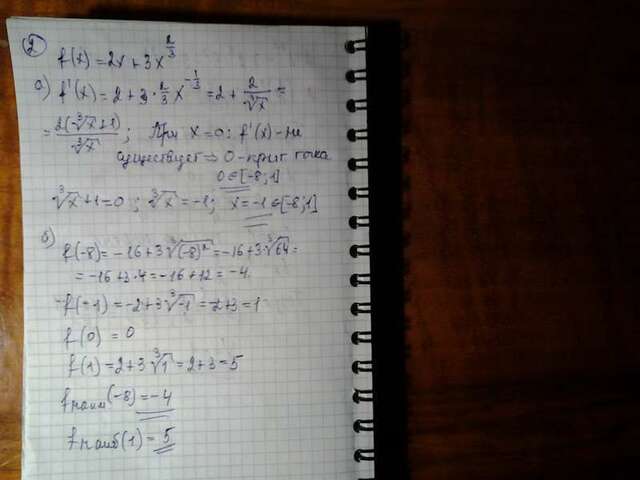 2
f(x) = 2x + 3x^(2/3)
а) f'(x) = 2 + 3·2/3 x^(-1/3) = 2 + 2/∛x =
= 2(∛x+1)/∛x ; При x=0: f'(x) - не
существует ⇒ 0 - крит. точка
0∈[-8;1]
∛x+1=0 ; ∛x=-1; x=-1∈[-8;1]
б)
f(-8) = -16+3∛(-8)² = -16+3∛64 =
= -16+3·4 = -16+12 = -4
f(-1) = -2+3∛-1 = -2+3=1
f(0) = 0
f(1) = 2+3∛1 = 2+3 = 5
fнаим(-8) = -4
fнаиб(1) = 5